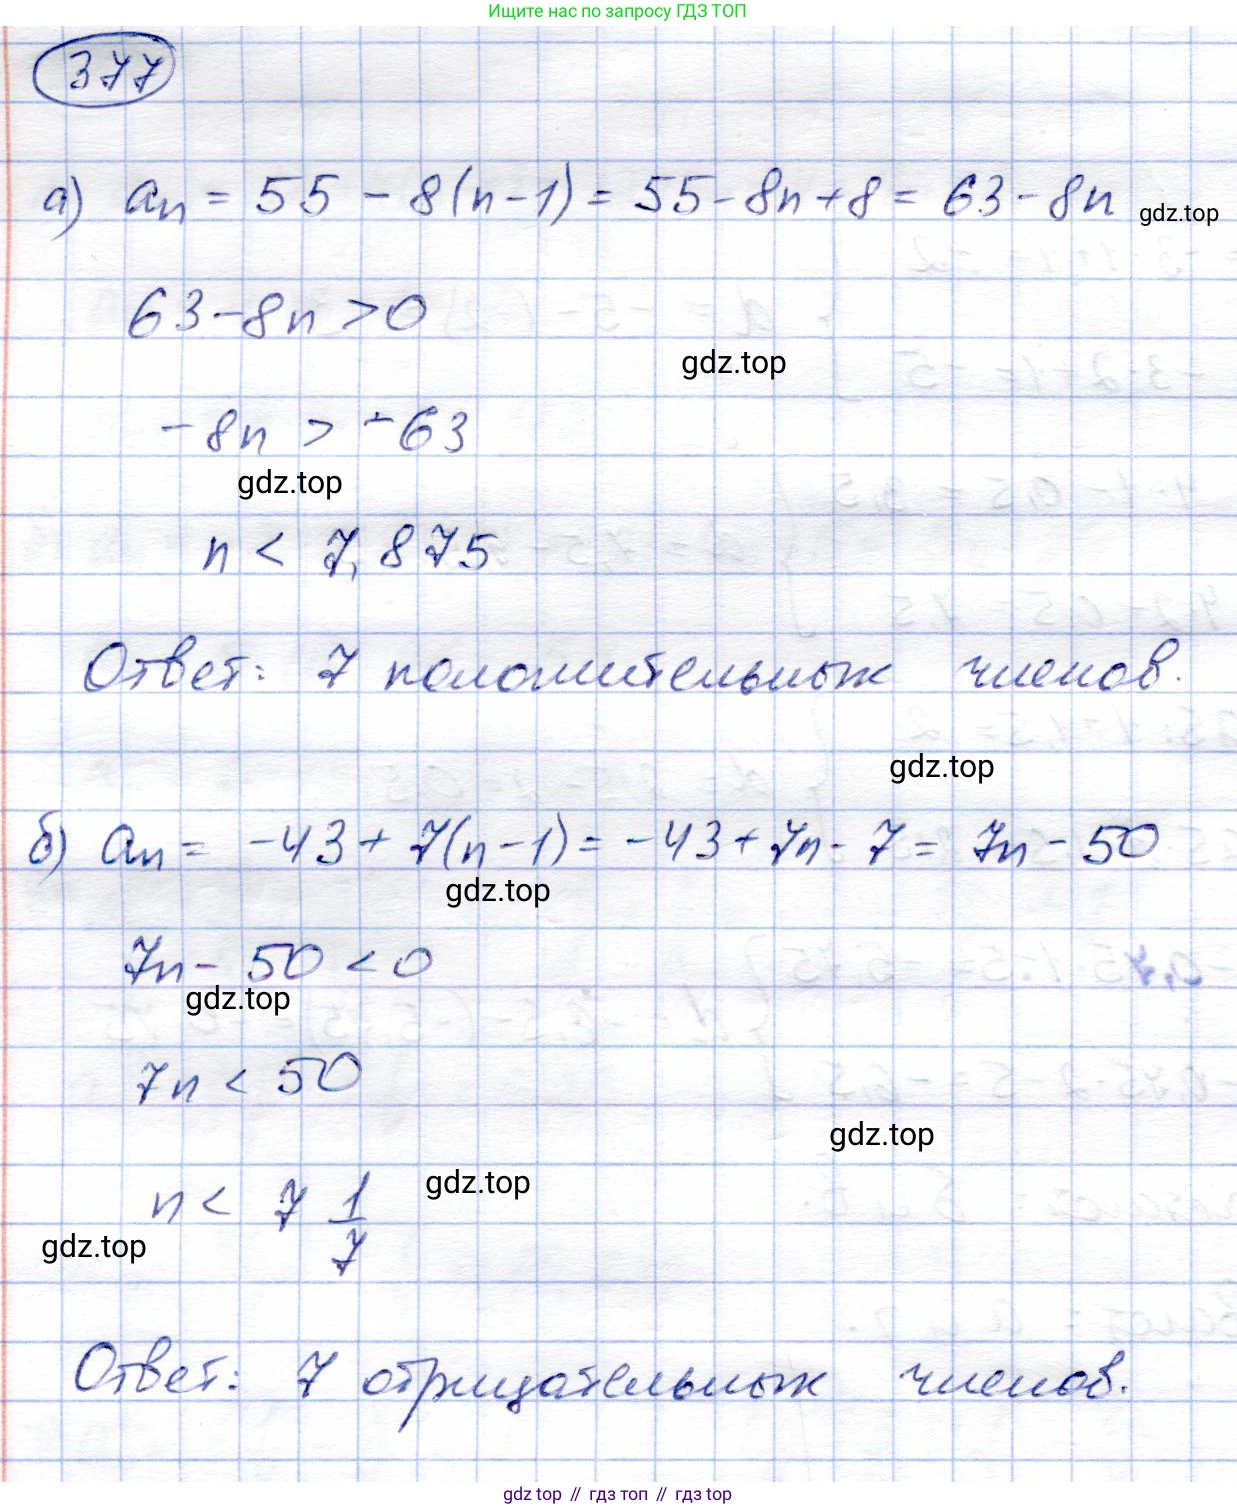 Ищите нас по запросу ГДЗ ТОП
377
а) an = 55 - 8(n-1) = 55 - 8n + 8 = 63 - 8n
gdz.top
63 - 8n > 0
gdz.top
-8n > -63
gdz.top
n < 7,875
Ответ: 7 положительных членов.
gdz.top
б) an = -43 + 7(n-1) = -43 + 7n - 7 = 7n - 50
gdz.top
7n - 50 < 0
gdz.top
7n < 50
gdz.top
n < 7 1/7
gdz.top
gdz.top
Ответ: 7 отрицательных членов.
gdz top // гдз топ // гдз top